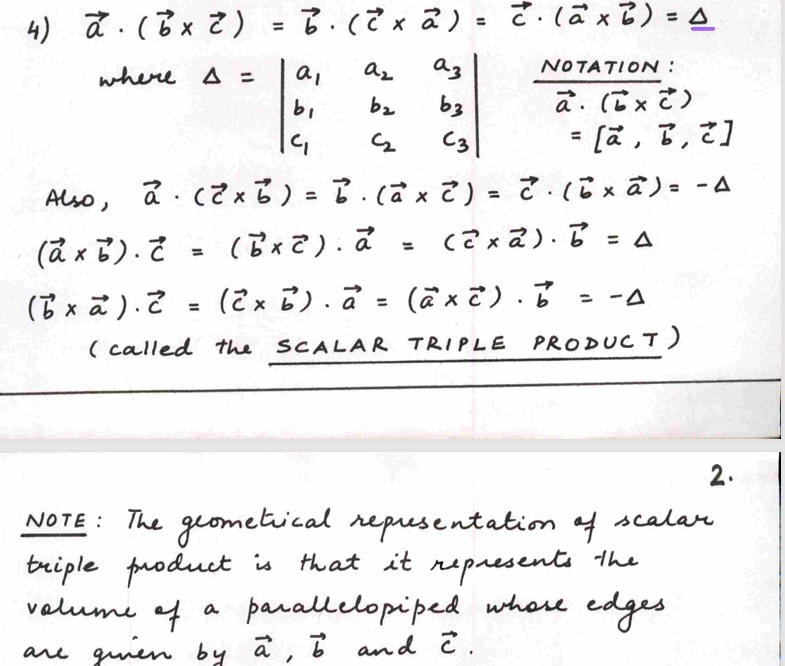 4) a⃗ . (b⃗ x c⃗) = b⃗ . (c⃗ x a⃗) = c⃗ . (a⃗ x b⃗) = Δ
where Δ = | a₁ a₂ a₃ |
| b₁ b₂ b₃ |
| c₁ c₂ c₃ |
NOTATION :
a⃗ . (b⃗ x c⃗)
= [a⃗ , b⃗ , c⃗]
Also, a⃗ . (c⃗ x b⃗) = b⃗ . (a⃗ x c⃗) = c⃗ . (b⃗ x a⃗) = -Δ
(a⃗ x b⃗) . c⃗ = (b⃗ x c⃗) . a⃗ = (c⃗ x a⃗) . b⃗ = Δ
(b⃗ x a⃗) . c⃗ = (c⃗ x b⃗) . a⃗ = (a⃗ x c⃗) . b⃗ = -Δ
(called the SCALAR TRIPLE PRODUCT)
2.
NOTE : The geometrical representation of scalar
triple product is that it represents the
volume of a parallelopiped whose edges
are given by a⃗ , b⃗ and c⃗ .